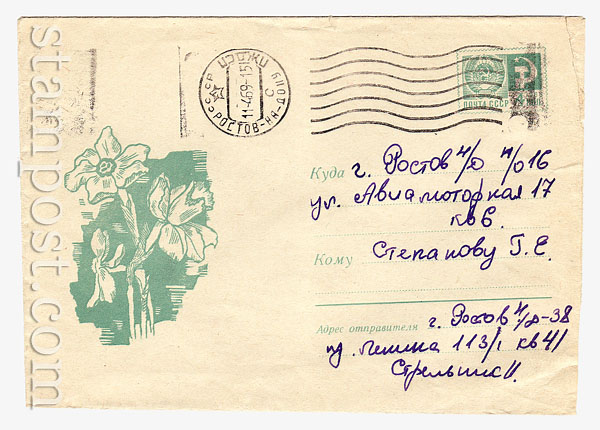 stamp-post.com
СССР
РОСТОВ-НА-ДОНУ
11-4 69-15
ПОЧТА СССР
Куда г. Ростов н/Д п/о 16
ул. Авиамоторная 17
кв 6.
Кому Степанову Г. Е.
Адрес отправителя г. Ростов н/Д-38
Ленина 113/1 кв 41